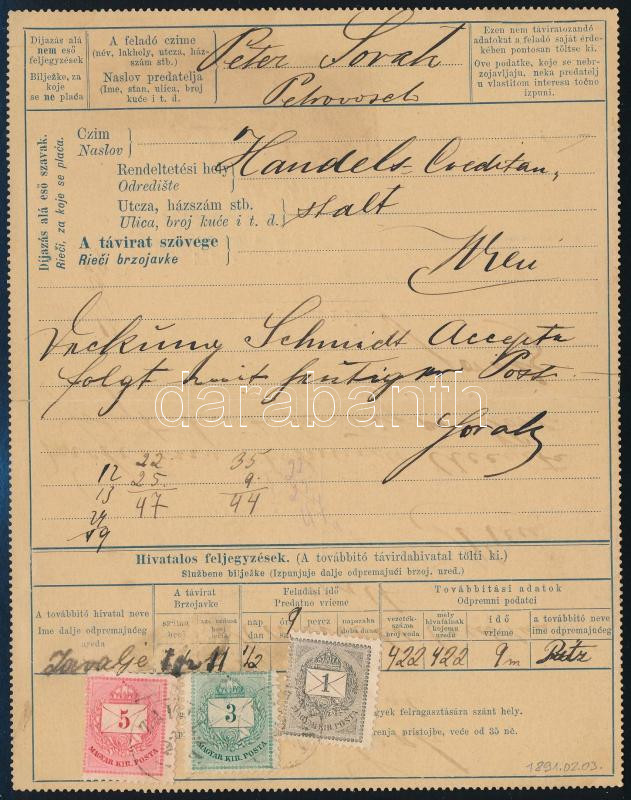 Díjazás alá
nem eső
feljegyzések
Bilježke, za
koje
se ne plaća
A feladó czime
(név, lakhely, utcza, ház-
szám stb.)
Naslov predatelja
(Ime, stan, ulica, broj
kuće i t. d.)
Péter
Petrovosel
Ezen nem táviratozandó
adatokat a feladó saját érde-
kében pontosan töltse ki.
Ove podatke, koje se nebr-
zojavljaju, neka predatelj
u vlastitom interesu točno
izpuni.
Díjazás alá eső szavak.
Rieči, za koje se plaća.
Czim
Naslov
Rendeltetési hely
Odredište
Handels Creditan„
Utcza, házszám stb.
Ulica, broj kuće i t. d.
stalt
A távirat szövege
Rieči brzojavke
Wien
Deckung Schmidt Accepte
folgt mit heutiger Post
darabanth
22 35
12 25 9
13 47 44
Hivatalos feljegyzések. (A továbbító távirdahivatal tölti ki.)
Službene bilježke (Izpunjuje dalje odpremajući brzoj. ured.)
A továbbító hivatal neve
Ime dalje odpremajućeg
ureda
A távirat
Brzojavke
Feladási idő
Predatno vrieme
nap
dan
perez
napszaka
doba dana
Továbbítási adatok
Odpremni podatci
vezeték-
száma
broj voda
mely
hivatalnak
kojemu
uredu
idő
vrieme
a továbbító neve
ime odpremajućeg
9
11 1/2 422 422 9m
5
MAGYAR KIR. POSTA
3
MAGYAR KIR. POSTA
1
MAGYAR KIR. POSTA
gyek felragasztására szánt hely.
renja pristojbe, veće od 35 nč.
1891.02.03.